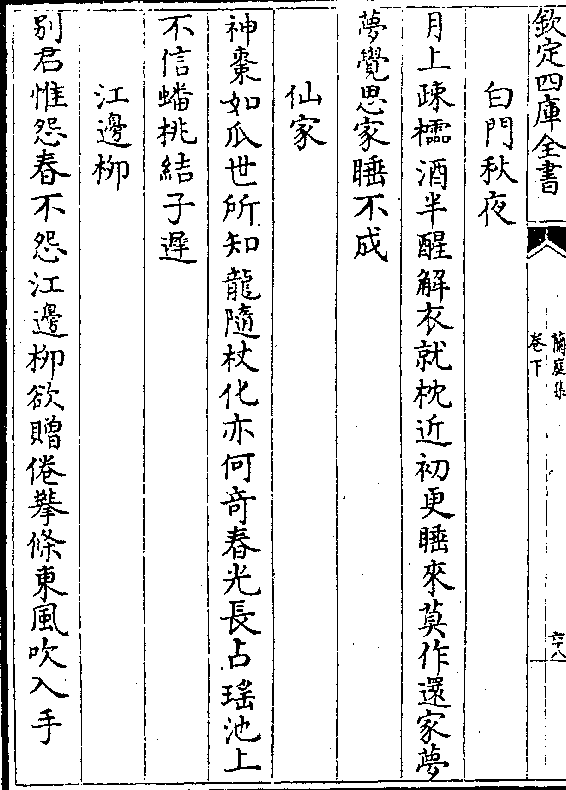 欽定四庫全書
蘭庭集
卷下
六十八
白門秋夜
月上疎櫺酒半醒解衣就枕近初更睡來莫作還家夢
夢覺思家睡不成
仙家
神棗如瓜世所知龍隨杖化亦何奇春光長占瑶池上
不信蟠桃結子遲
江邊柳
别君惟怨春不怨江邊柳欲贈倦攀條東風吹入手